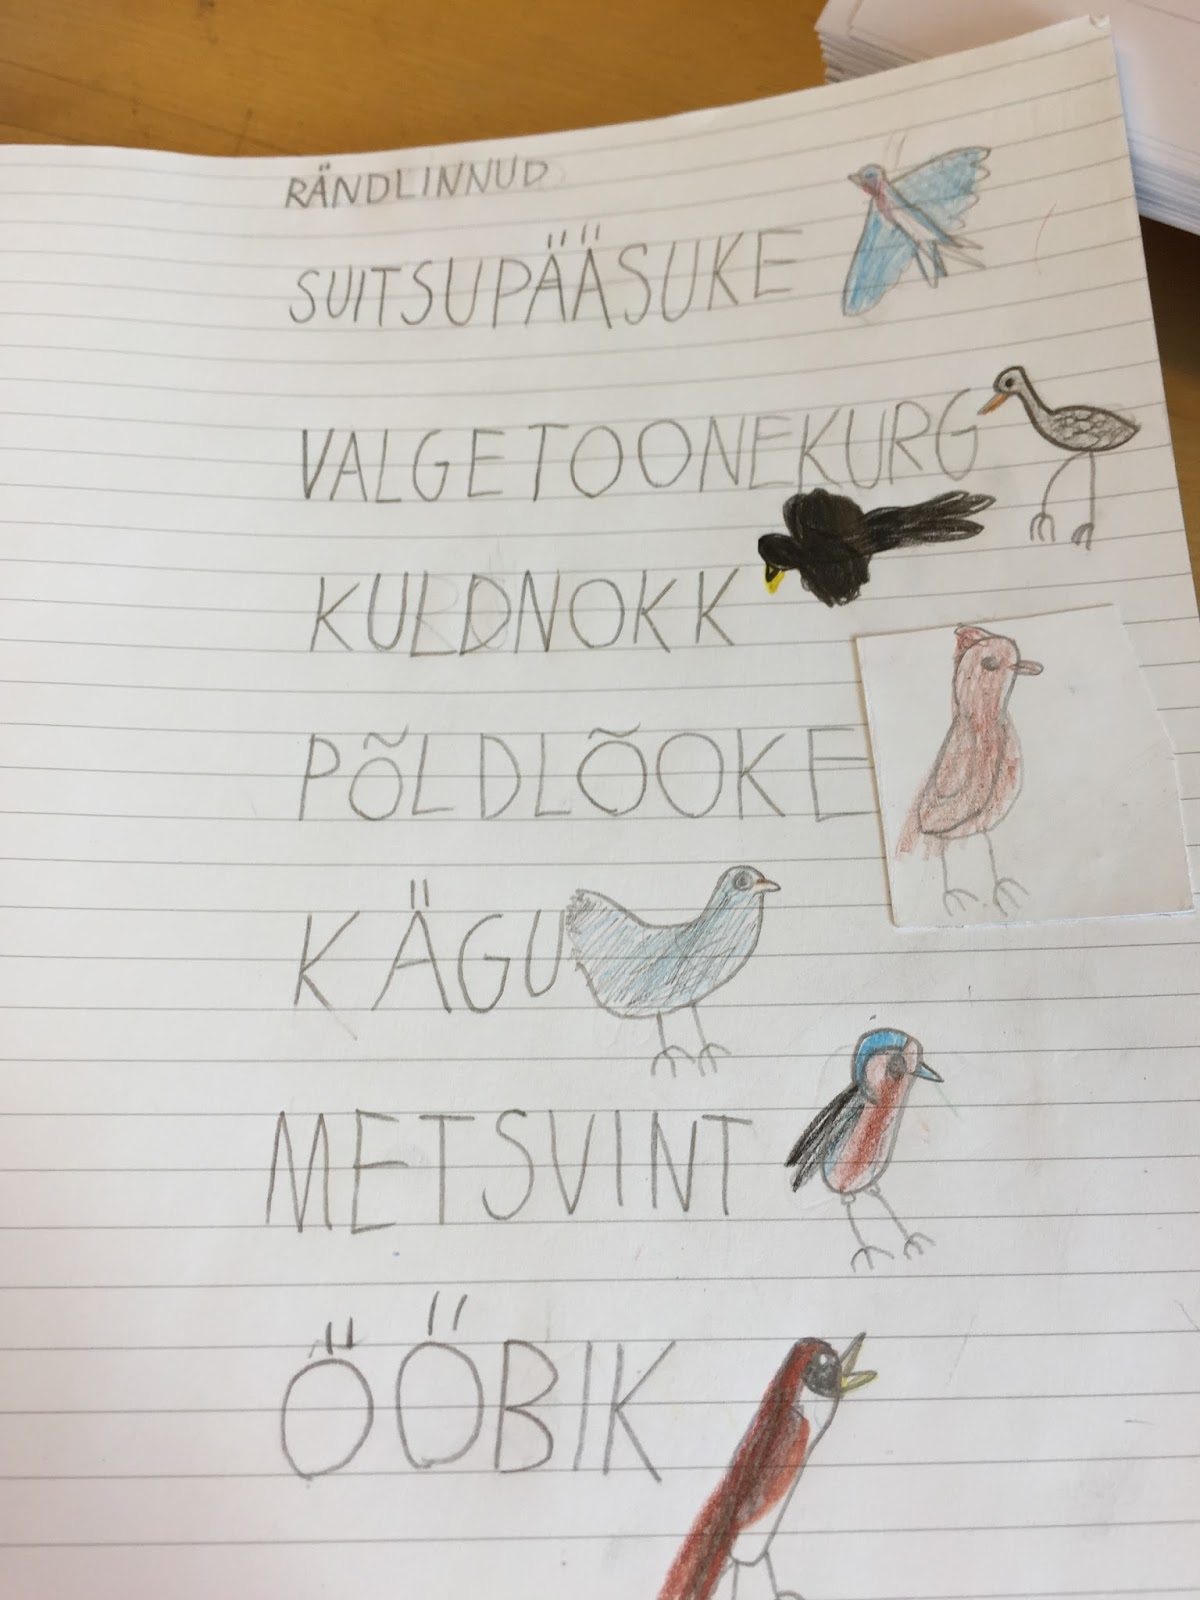 RÄNDLINNUD
SUITSUPÄÄSUKE
VALGETOONEKURG
KULDNOKK
PÕLDLÕOKE
KÄGU
METSVINT
ÖÖBIK